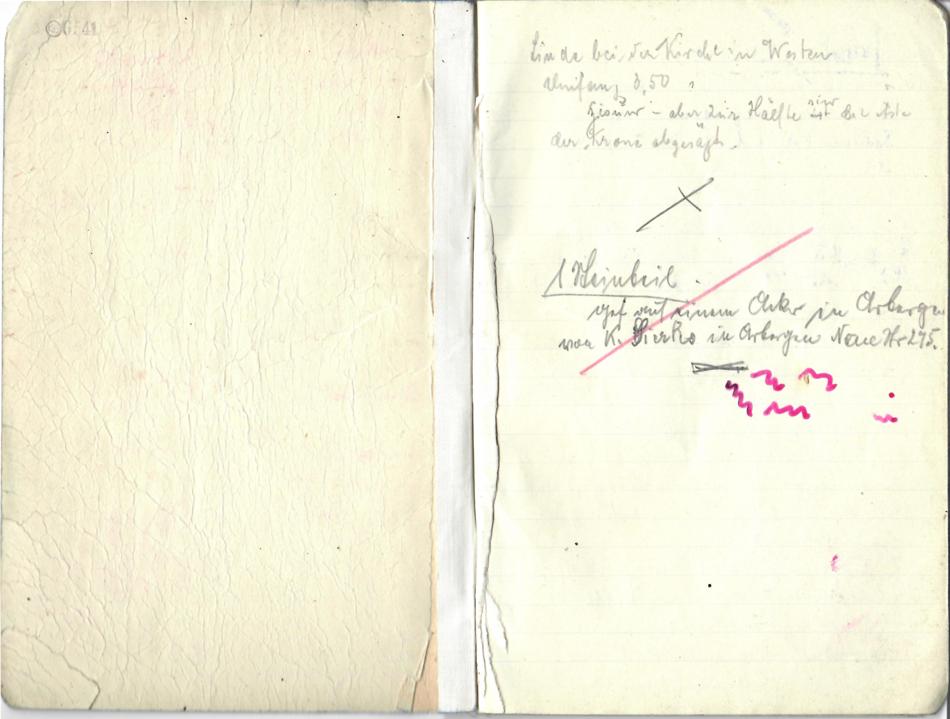 6. 41
Linde bei der Kirche in Westen
Umfang 3,50
Gesund – aber zur Hälfte sind die Äste
der Krone abgesägt.
1 Steinbeil.
gef. auf einem Acker in Arbergen
von K. in Arbergen Neue Nr 275.